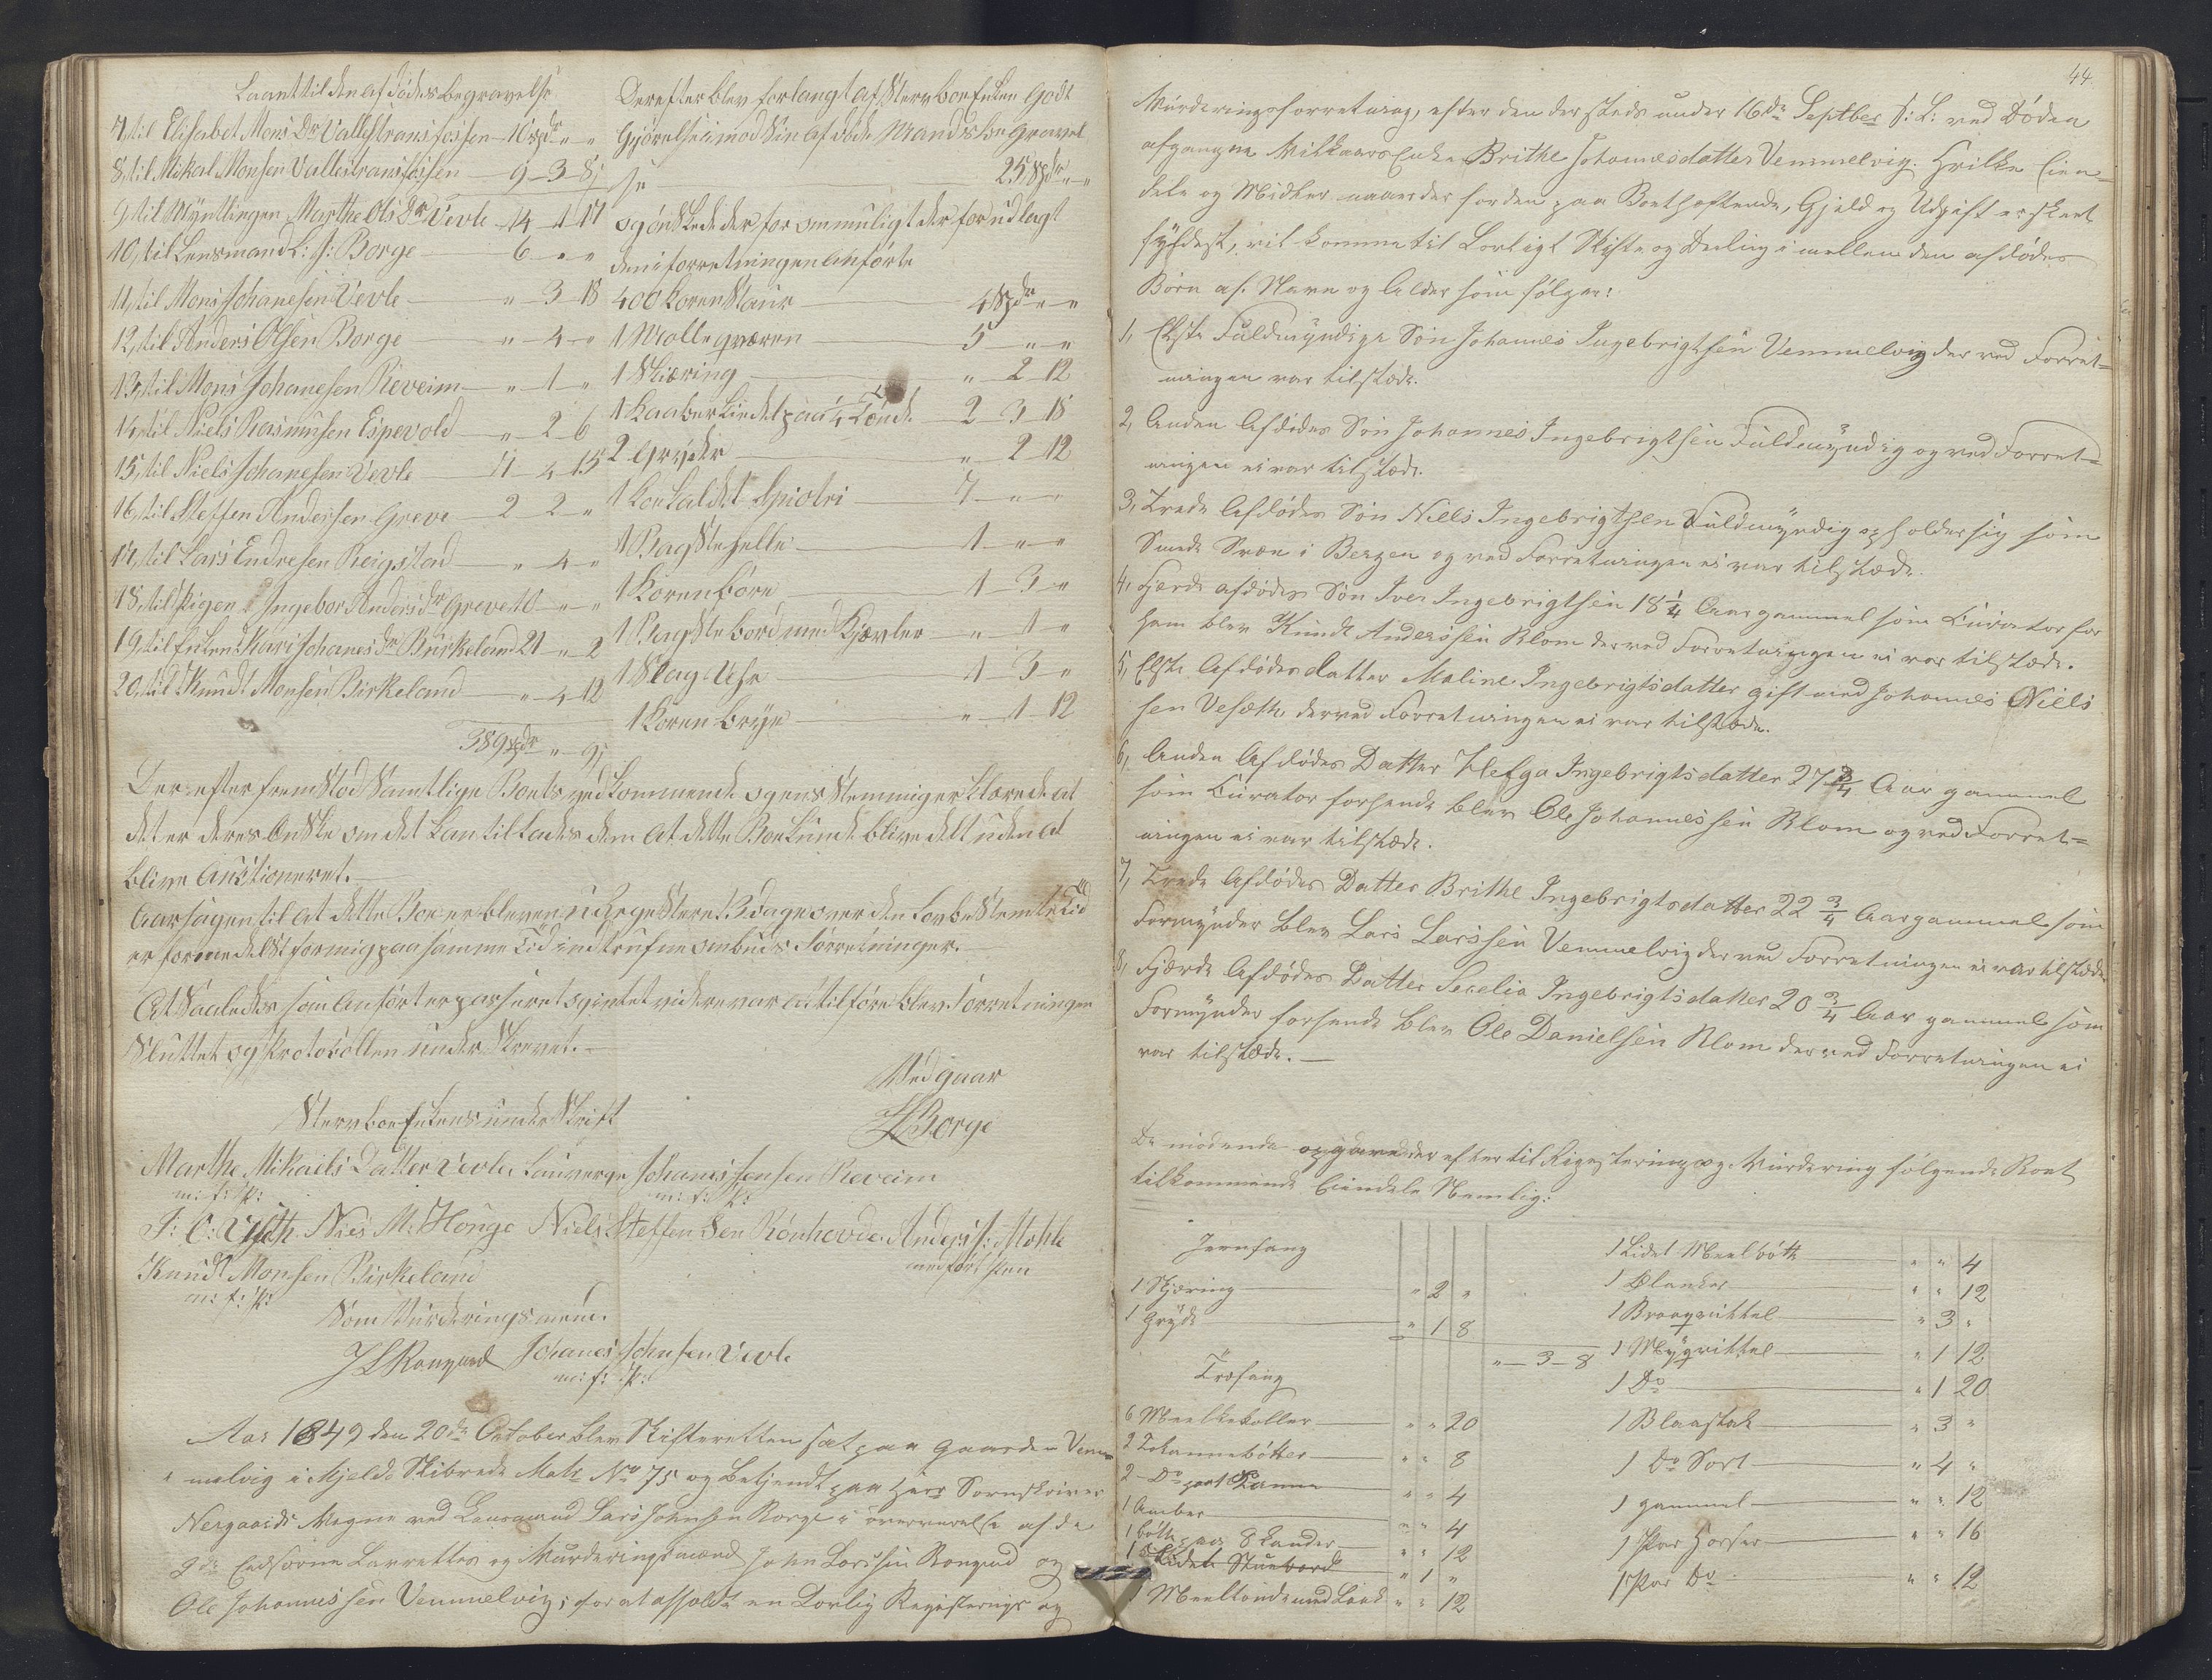 Laant til den afdødes begravelse
7, til Elisabet Mons Dr Vallestransfossen 16 spdr " "
8, til Mikal Monsen Vallestransfossen 9 - 3 - 8
9, til Myntlingen Marthe Ols Dr Vevle 14 - 1 17
10, til Lensmand L: J: Borge 6 " "
11, til Mons Johanesen Vevle " 3 - 18
12, til Anders Olsen Borge " - 4 - "
13, til Mons Johanesen Reveim " - 1 - "
14, til Niels Rasmusen Espevold " - 2 - 6
15, til Niels Johanesen Vevle 11 - 4 - 15
16, til Steffen Andersen Greve 2 2 - "
17, til Lars Endresen Reigstad " - 4 - "
18, til Pigen Ingebor Anders Dr Greve 10 - " - "
19, til Enken Kari Johanes Dr Birkeland 21 - " 2
20, til Knudt Monsen Birkeland " - 4 - 12
389 spdr " 9
Derefter blev forlangt af Stervboenken Godt
Gjørelse imod Sin afdøde Mands begravel
se 25 Spdr " "
og ønskede derfor om muligt derfor udlagt
den i forretningen anførte
400 Koren Staur 4 Spdr " "
1 Malle qværn 5 " "
1 Skiæring " 2 12
1 Kaaberkiedel paa 1/4 Tønde 2 - 3 - 18
2 Gryder " 2 12
1 Koe kaldet Spiotri 7 " "
1 Bagstehelle 1 - " - "
1 Koren børe 1 - 3 - "
1 Bagstebord med Kjævler " 1 - "
1 Slag Uhr 1 3 - "
1 Koren brye " - 1 12
Derefter fremstod Samtlige Boets vedkommende og eens Stemmig erklærede at
det er deres Ønske om det kan tillades dem at dette Boe kunde blive delt uden at
blive Auctioneret.
Aarsagen til at dette Boe er bleven Regesteret 3 dage over den Lovbestemte Tid
er formedelst for mig paa samme Tid indtrufne ombuds Forretninger.
At Saaledes som Anført er passeret og intet videre var at tilføre blev Forretningen
Sluttet og Protokollen underskrevet.
Vedgaar
L Borge
Stervboe Enkens underskrift
Marthe Mikaels Datter Vevle Laugverge Johanes Jensen Reveim
m: f: P: m: f: P:
J: C: Niels M: Houge Niels Steffensen Rønhovde Anders J: Mohle
med ført Pen
Knudt Monsen Birkeland
m: f: P:
Som Vurderingsmænd.
J L Rongved Johanes Johnsen Vevle
m: f: P:
Aar 1849 den 20de October blev Skifteretten sat paa Gaarden Vem
melvig i Mjelde Skibrede Matr No 75 og betjendt paa Herr Sorenskriver
Nergaards Vegne ved Lensmand Lars Johnsen Borge i overværelse af de
2de Eedsvorne Laurettes og Vurderingsmænd John Larssen Rongved og
Ole Johannessen Vemmelvig; for at afholde en Lovlig Registerings og
44
Vurderingsforretning, efter den dersteds under 16de Septber f: L: ved Døden
afgangne Vilkaars Enke Brithe Johannesdatter Vemmelvig. Hvilke Eien-
dele og Midler naar der for den paa Boet heftende, Gjeld og Udgift er skeet
fyldest, vil komme til Lovligt Skifte og Deeling imellem den afdødes
Børn af Navn og Alder som følger:
1, Elste Fuldmyndige Søn Johannes Ingebrigtsen Vemmelvig der ved Forret-
ningen var tilstæde.
2, Anden Afdødes Søn Johannes Ingebrigtsen Fuldmyndig og ved Forret-
ningen ei var tilstæde.
3, Tredie Afdødes Søn Niels Ingebrigtsen Fuldmyndig opholder sig som
Smede Svæn i Bergen og ved Forretningen ei var tilstæde.
4, Fjærde afdødes Søn Iver Ingebrigtsen 18 1/4 Aar gammel som Curator for
ham blev Knudt Anderssen Blom der ved Forretningen ei var tilstæde.
5, Elste Afdødes datter Maline Ingebrigtsdatter gift med Johannes Niels
sen Vesæth der ved Forretningen ei var tilstæde.
6, Anden Afdødes Datter Helga Ingebrigtsdatter 27 3/4 Aar gammel
som Curator for hende blev Ole Johannessen Blom og ved Forret-
ningen ei var tilstæde.
7, Tredie Afdødes Datter Brithe Ingebrigtsdatter 22 3/4 Aar gammel som
Formynder blev Lars Larssen Vemmelvig der ved Forretningen ei var tilstæde.
8, Fjærde Afdødes Datter Secelia Ingebrigtsdatter 20 3/4 Aar gammel som
Formynder for hende blev Ole Danielsen Blom der ved Forretningen ei
var tilstæde.
De mødende opgave derefter til Registering og Vurdering følgende Boet
tilkommende Eiendele Nemlig:
Jernfang
1 Skjæring " 2 "
1 Gryde " 1 8
" - 3 - 8
Træfang
6 Meelkekoller " " 20
2 Tokannebøtter " " 8
2 Do paa 1 Kanne " " 4
1 Ambar " " 4
1 bøtte paa 8 Kander " " 12
1 Lidet Stuebord " 1 "
1 Meeltønde med Laak " " 12
1 Lidet Meelbøtte " " 4
1 " " 12
1 Braaqvittel " 3 "
1 Myqvittel " 1 12
1 Do " 1 20
1 Blaastak " 3 "
1 Do Sort " 4 "
1 gammel " " 12
1 Par Hoser " " 16
1 Par Do " " 12